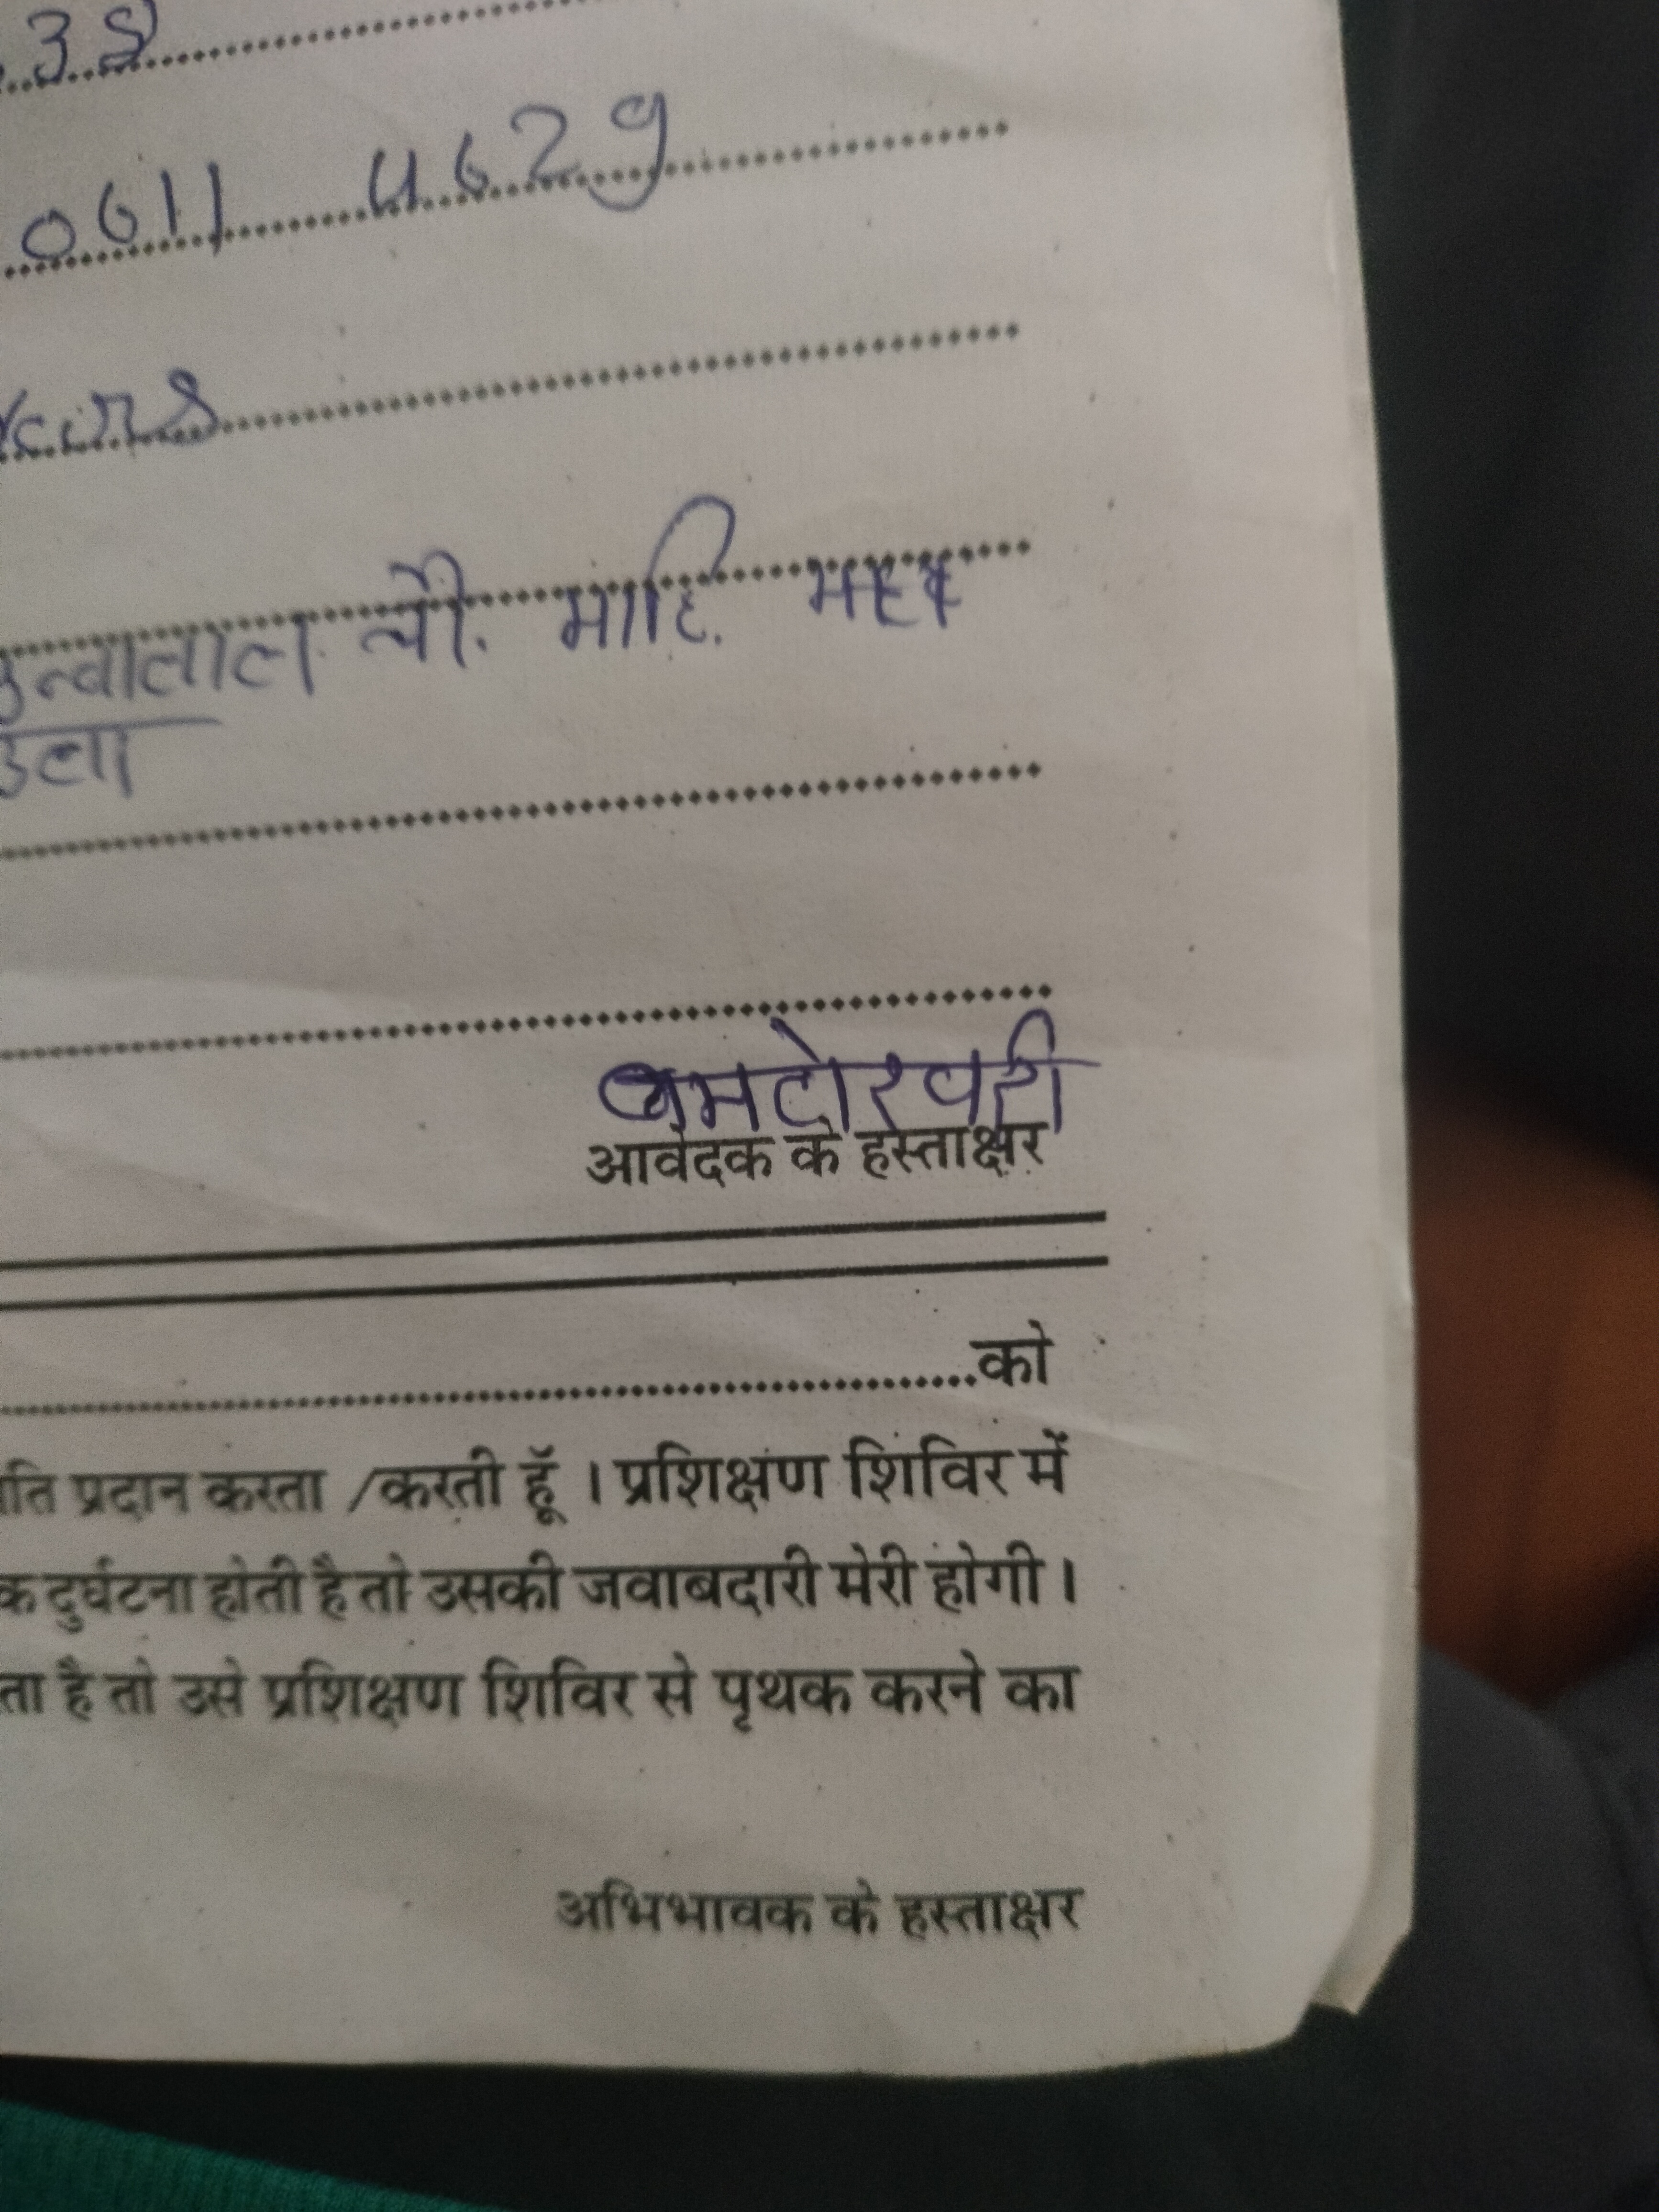 38
0611 4629
न्वालाल चौ.
आवेदक के हस्ताक्षर
को
ति प्रदान करता /करती हूॅं । प्रशिक्षण शिविर में
क दुर्घटना होती है तो उसकी जवाबदारी मेरी होगी ।
ता है तो उसे प्रशिक्षण शिविर से पृथक करने का
अभिभावक के हस्ताक्षर